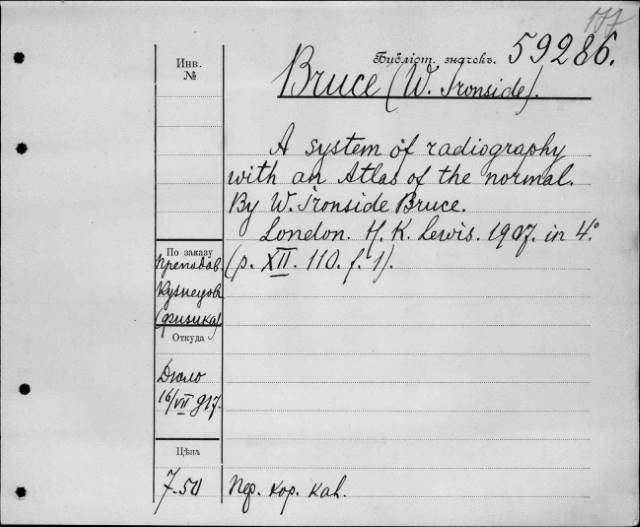 177
Инв. №
Библіот. значекъ. 59286.
Bruce (W. Ironside).
A system of radiography
with an Atlas of the normal.
By W. Ironside Bruce.
London. H. K. Lewis. 1907. in 4°
(p. XII. 110. f. 1).
По заказу
Преподав.
Кузнецов
(физика)
Откуда
Дѣло
16/VII 917.
Цѣна
7.50
пер. кор. кал.